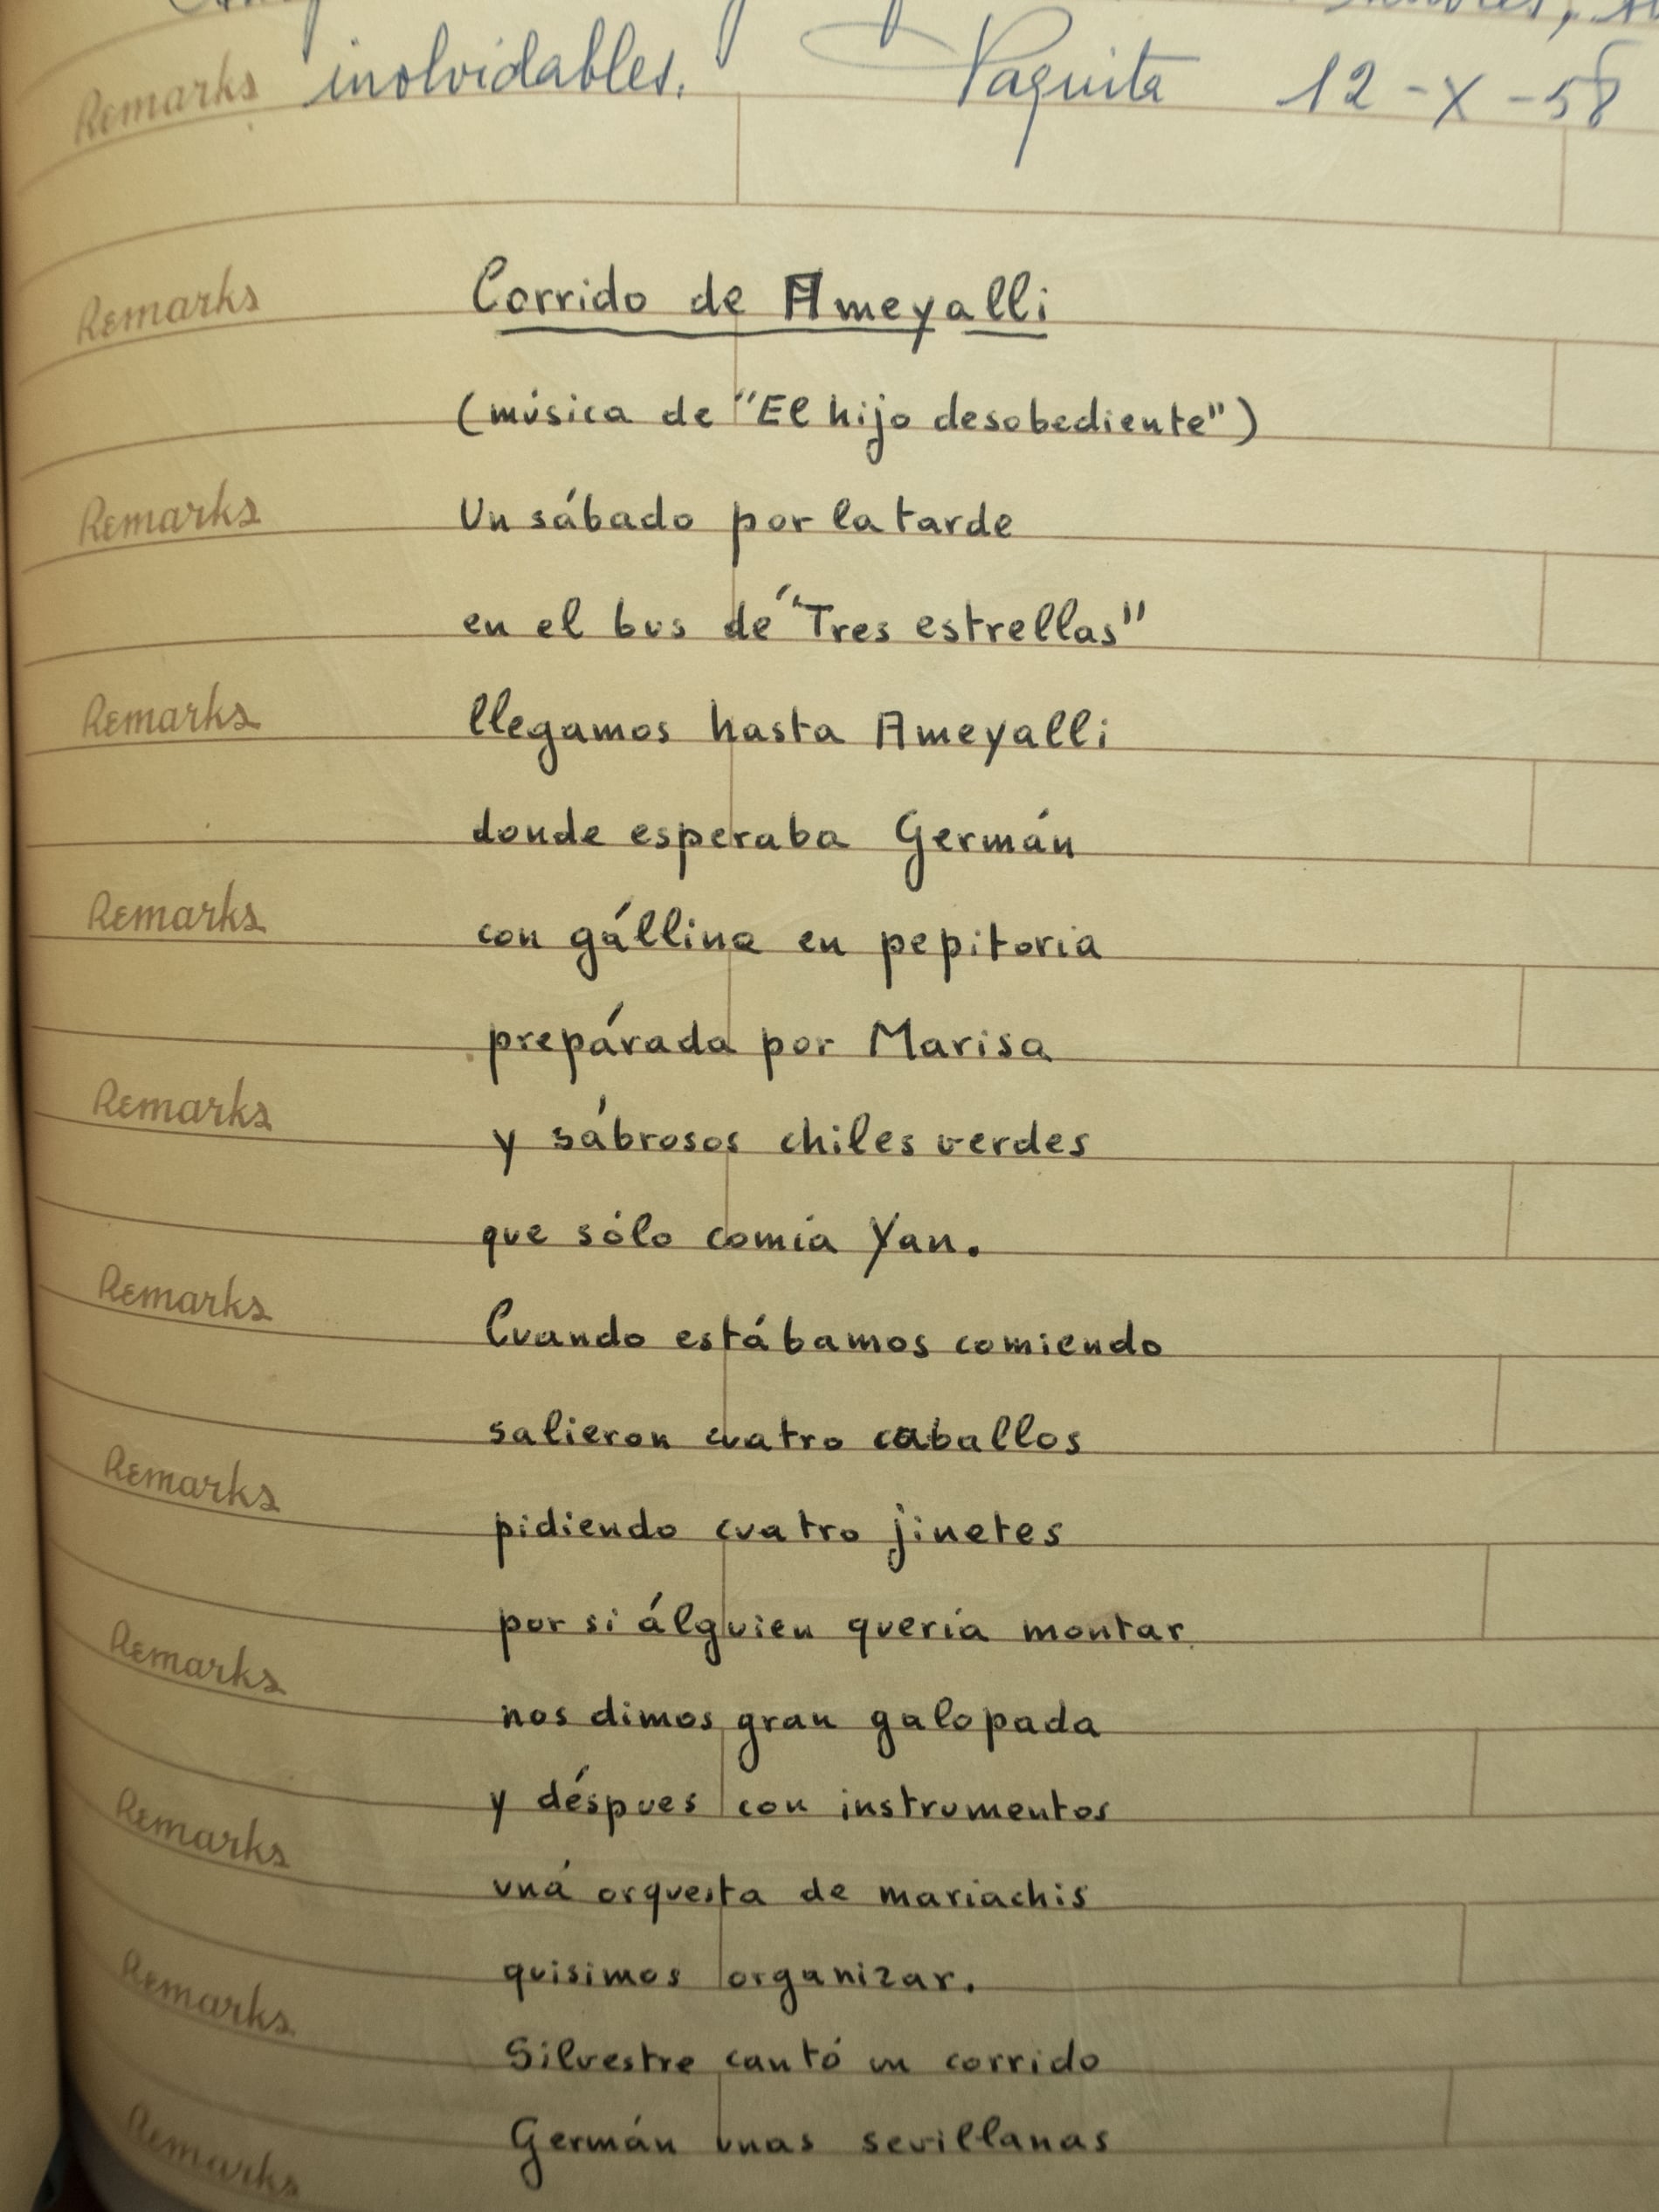 Remarks inolvidables. Paquita 12-X-58
Remarks Corrido de Ameyalli
(música de "El hijo desobediente")
Remarks Un sábado por la tarde
en el bus dé "Tres estrellas"
Remarks llegamos hasta Ameyalli
donde esperaba Germán
Remarks con gállina en pepitoria
prepárada por Marisa
Remarks y sábrosos chiles verdes
que sólo comía Yan.
Remarks Cuando estábamos comiendo
salieron cuatro caballos
Remarks pidiendo cuatro jinetes
por si álguien quería montar
Remarks nos dimos gran galopada
y déspues con instrumentos
Remarks uná orquesta de mariachis
quisimos organizar.
Remarks Silvestre cantó un corrido
Remarks Germán unas sevillanas